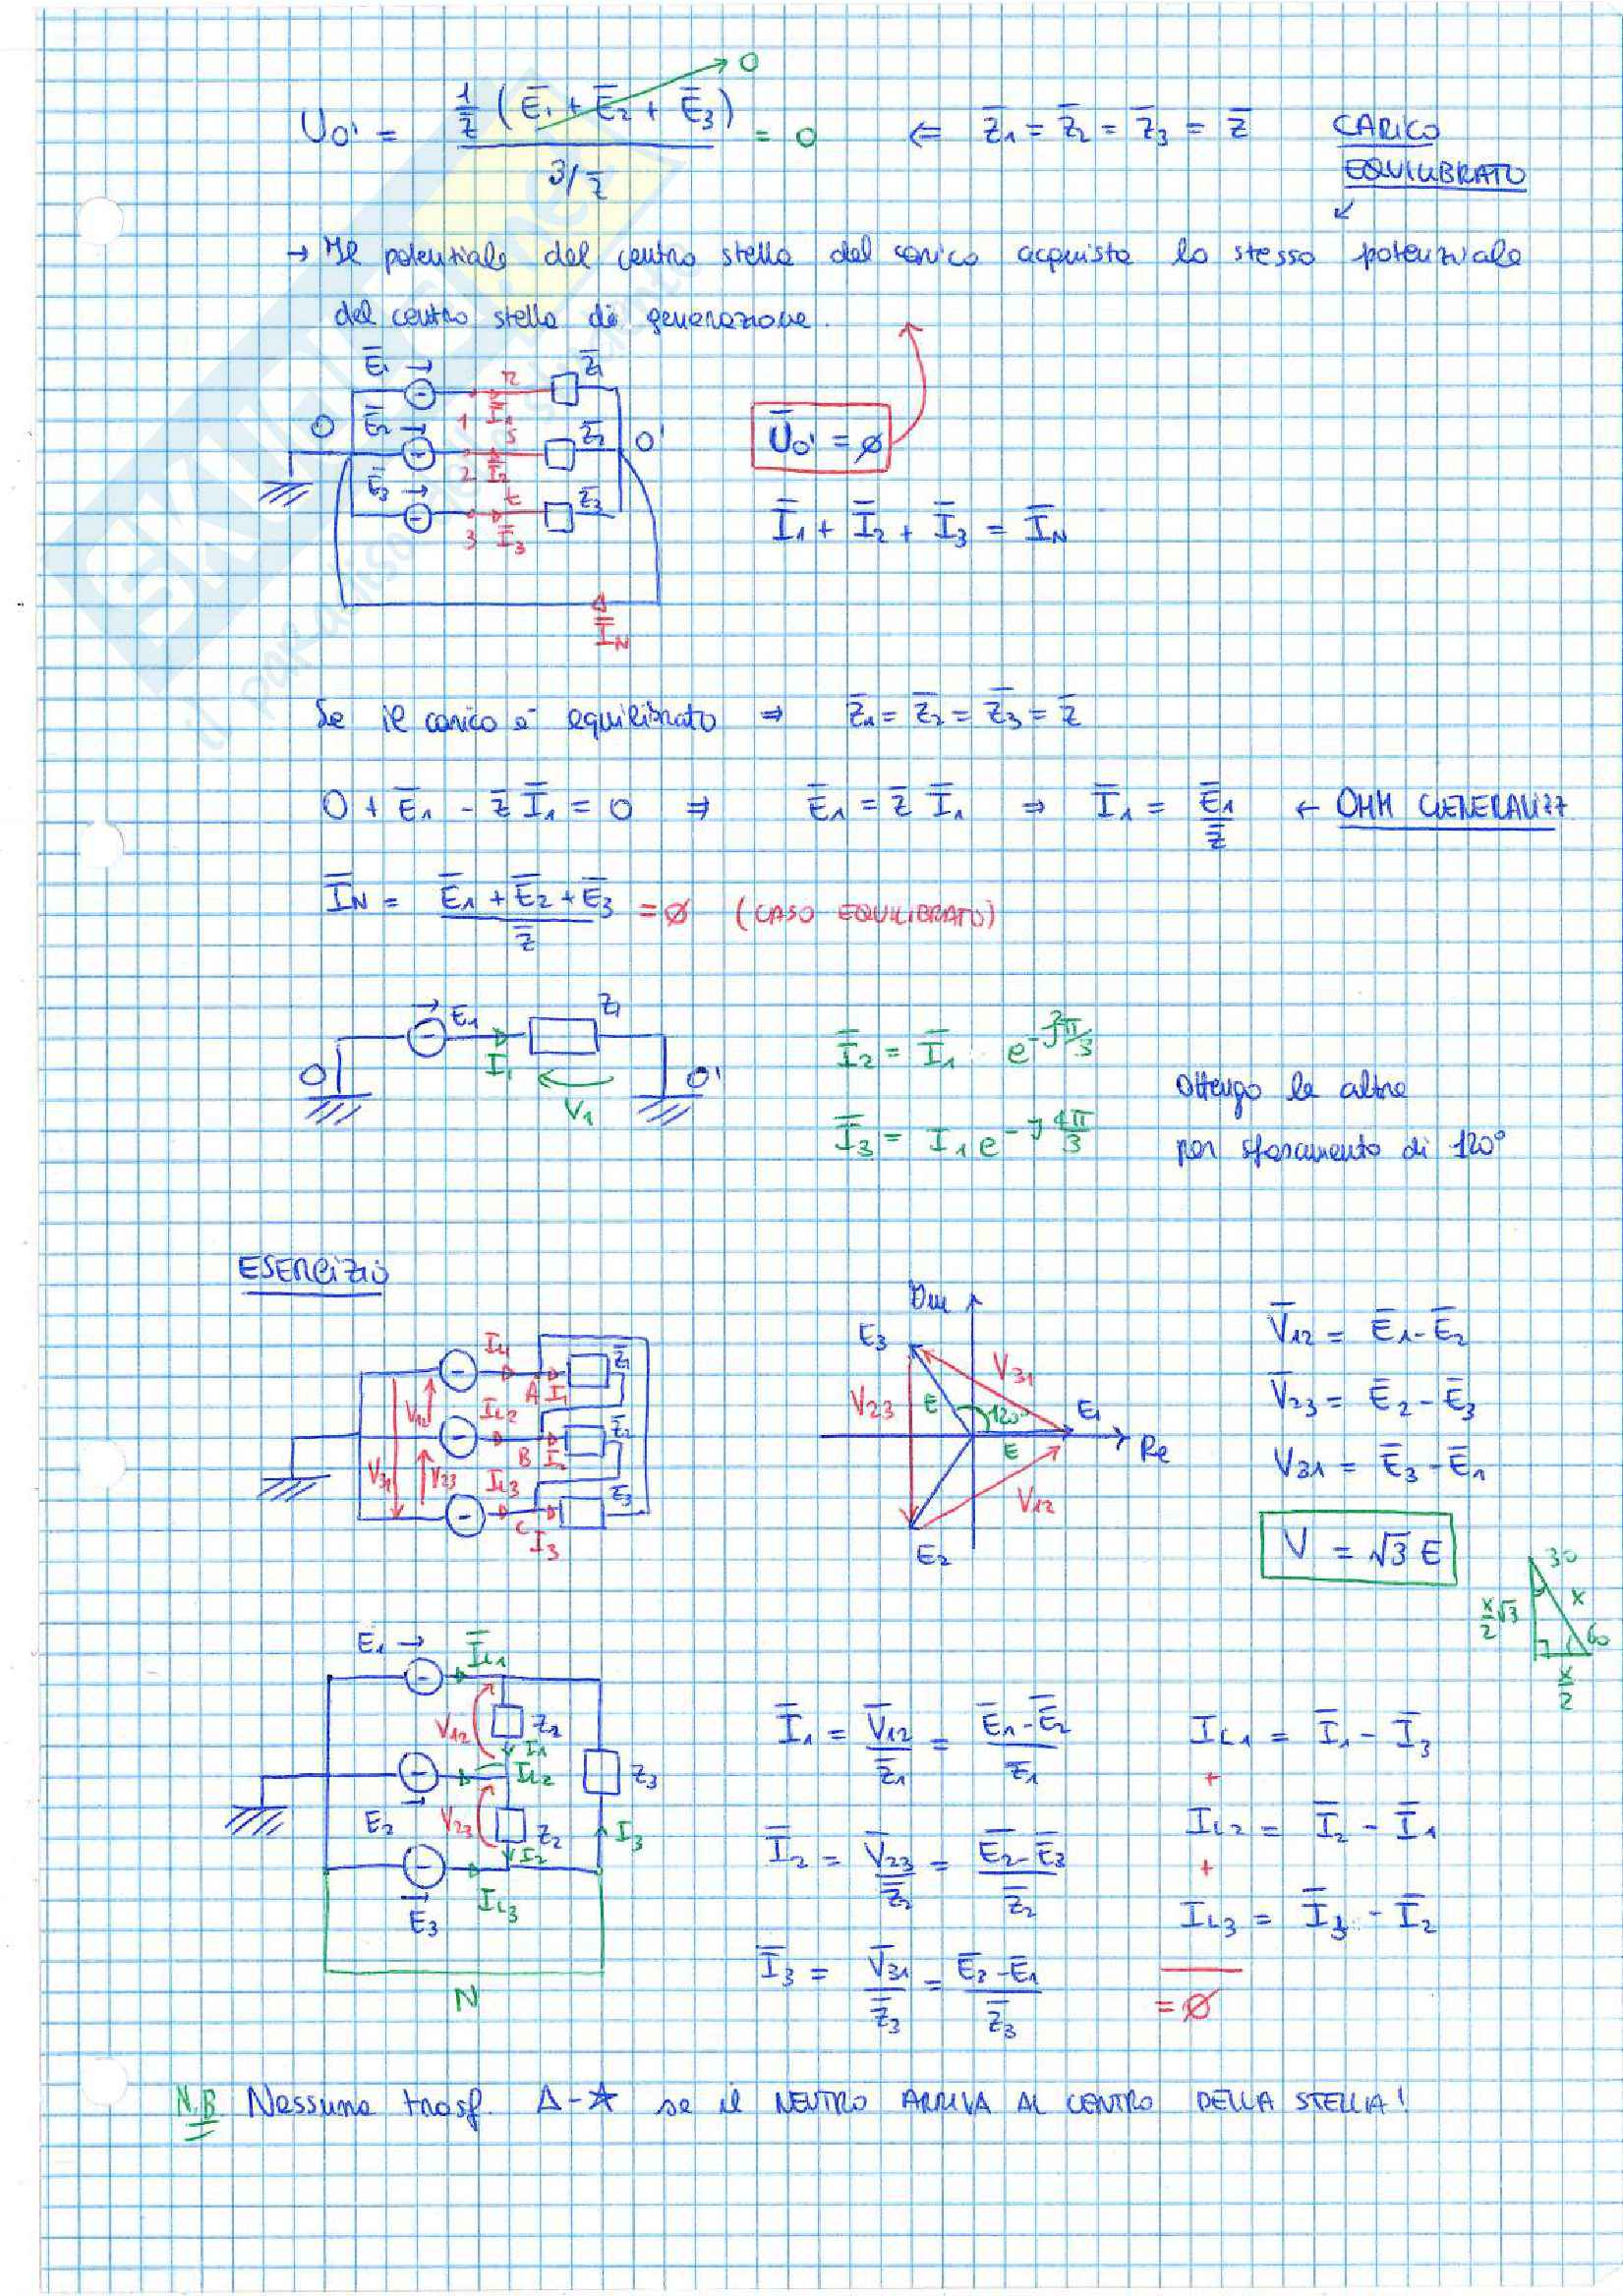 U̅o' = 1/z̅ (E̅1 + E̅2 + E̅3) → 0 / 3/z̅ = 0 ⇐ z̅1 = z̅2 = z̅3 = z̅ CARICO
EQUILIBRATO
→ Il potenziale del centro stella del carico acquista lo stesso potenziale
del centro stella di generazione.
E̅1 → r z̅1
1 I̅1
O E̅2 → s z̅2 O'
2 I̅2
E̅3 → t z̅3
3 I̅3
I̅N
U̅o' = ø
I̅1 + I̅2 + I̅3 = I̅N
Se il carico è equilibrato ⇒ z̅1 = z̅2 = z̅3 = z̅
0 + E̅1 - z̅ I̅1 = 0 ⇒ E̅1 = z̅ I̅1 ⇒ I̅1 = E̅1/z̅ ← OHM GENERALIZZ
I̅N = E̅1 + E̅2 + E̅3 / z̅ = ø (CASO EQUILIBRATO)
→ E1 Z1
O I1 V1 O'
I̅2 = I̅1 e^-j2π/3
I̅3 = I1 e^-j4π/3
Ottengo le altre
per sfasamento di 120°
ESERCIZIO
IL1 A I1 z̅1
V12 IL2 B I2 z̅2
V31 V23 IL3 C I3 z̅3
Im
E3 V31
V23 E 120° E1
E Re
V12
E2
V̅12 = E̅1 - E̅2
V̅23 = E̅2 - E̅3
V31 = E̅3 - E̅1
V = √3 E
30
x/2 √3 x
60
x/2
E1 → I̅L1
V12 Z2
I1
IL2 Z3
E2 → V23 Z2 I3
I2
→ E3 IL3
N
I̅1 = V̅12/z̅1 = E̅1 - E̅2/z̅1
I̅2 = V̅23/z̅2 = E̅2 - E̅3/z̅2
I̅3 = V̅31/z̅3 = E̅3 - E̅1/z̅3
IL1 = I̅1 - I̅3
+
IL2 = I̅2 - I̅1
+
IL3 = I̅3 - I̅2
= ø
N.B Nessuna trasf. Δ-☆ se il NEUTRO ARRIVA AL CENTRO DELLA STELLA!